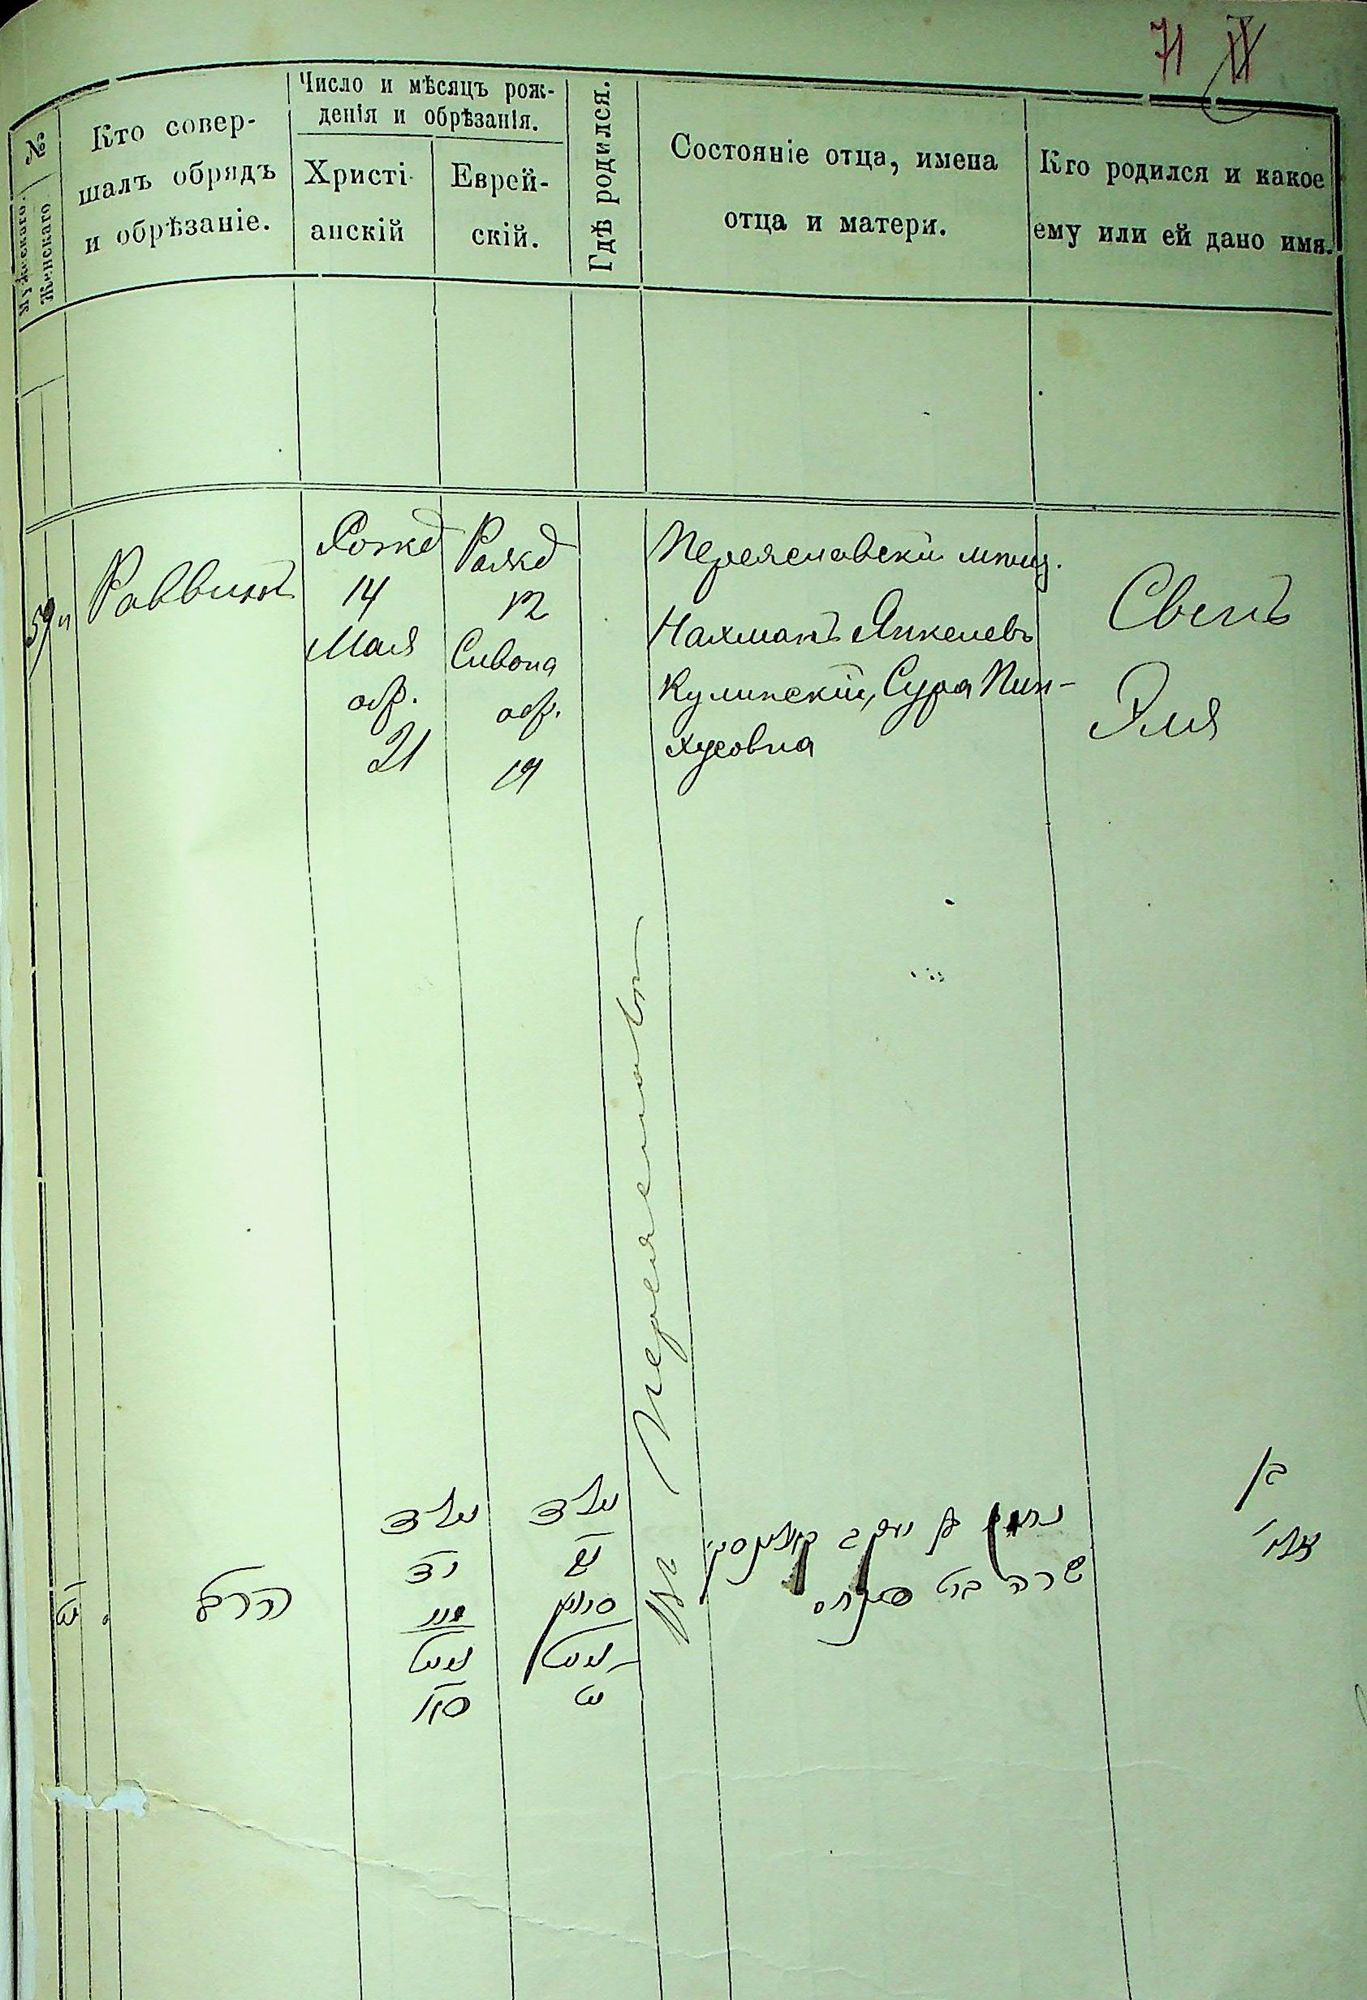 71
№
Мужескаго.
Женскаго
Кто совер-
шалъ обрядъ
и обрѣзаніе.
Число и мѣсяцъ рож-
денія и обрѣзанія.
Христі-
анскій
Еврей-
скій.
Гдѣ родился.
Состояніе отца, имена
отца и матери.
Кто родился и какое
ему или ей дано имя.
59
Раввинъ
Рожд
14
Мая
обр.
21
Рожд
12
Сивона
обр.
19
Въ Переяславѣ
Переяславскій мѣщ.
Нахманъ Янкелевъ
Кулинскій, Сура Пин-
хусовна
Сынъ
Эля
הרב
נולד
יד
מאי
נימול
נולד
יב
סיון
נימול
יט
נחמן בן יעקב קולינסקי
שרה בת פינחס
בן
אלי